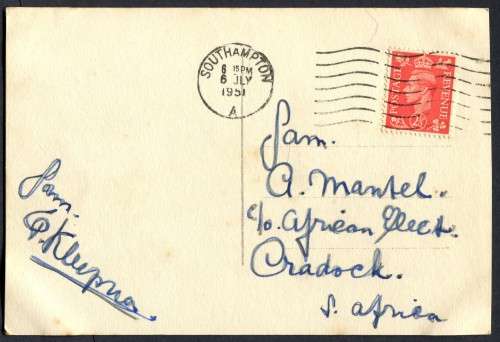 SOUTHAMPTON
6 15 PM
6 JLY
1951
A
POSTAGE
REVENUE
Fam.
A. Mantel.
c/o African Elect.
Cradock.
S. Africa
Fam.